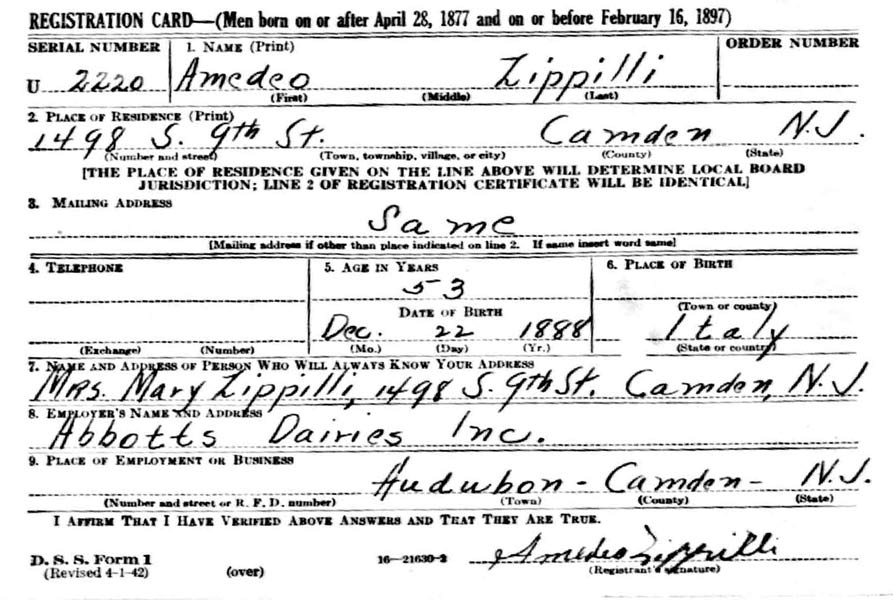 REGISTRATION CARD—(Men born on or after April 28, 1877 and on or before February 16, 1897)
SERIAL NUMBER 1. NAME (Print) ORDER NUMBER
U 2220 Amedeo Zippilli
(First) (Middle) (Last)
2. PLACE OF RESIDENCE (Print)
1498 S. 9th St. Camden N.J.
(Number and street) (Town, township, village, or city) (County) (State)
[THE PLACE OF RESIDENCE GIVEN ON THE LINE ABOVE WILL DETERMINE LOCAL BOARD
JURISDICTION; LINE 2 OF REGISTRATION CERTIFICATE WILL BE IDENTICAL]
3. MAILING ADDRESS
Same
[Mailing address if other than place indicated on line 2. If same insert word same]
4. TELEPHONE 5. AGE IN YEARS 6. PLACE OF BIRTH
53
DATE OF BIRTH (Town or county)
Dec. 22 1888 Italy
(Exchange) (Number) (Mo.) (Day) (Yr.) (State or country)
7. NAME AND ADDRESS OF PERSON WHO WILL ALWAYS KNOW YOUR ADDRESS
Mrs. Mary Zippilli, 1498 S. 9th St. Camden, N.J.
8. EMPLOYER'S NAME AND ADDRESS
Abbotts Dairies Inc.
9. PLACE OF EMPLOYMENT OR BUSINESS
Audubon - Camden - N.J.
(Number and street or R. F. D. number) (Town) (County) (State)
I AFFIRM THAT I HAVE VERIFIED ABOVE ANSWERS AND THAT THEY ARE TRUE.
D. S. S. Form 1 16—21630-2 Amedeo Zippilli
(Revised 4-1-42) (over) (Registrant's signature)